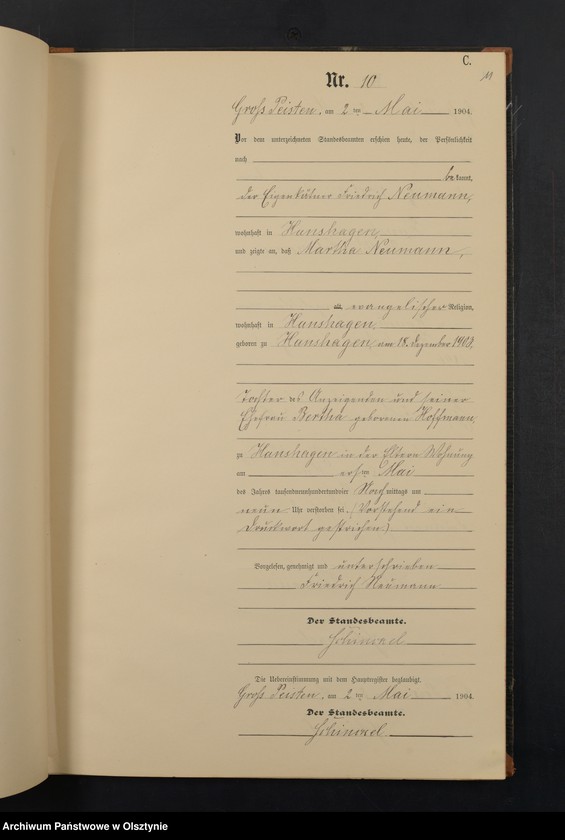 C.
11
Nr. 10
Groß Peisten, am 2ten Mai 1904.
Vor dem unterzeichneten Standesbeamten erschien heute, der Persönlichkeit
nach
be kannt,
der Eigenkätner Friedrich Neumann,
wohnhaft in Hanshagen,
und zeigte an, daß Martha Neumann,
alt, evangelischer Religion,
wohnhaft in Hanshagen,
geboren zu Hanshagen, am 18. Dezember 1903,
Tochter des Anzeigenden und seiner
Ehefrau Bertha geborenen Hoffmann,
zu Hanshagen in der Eltern Wohnung
am ersten Mai
des Jahres tausendneunhundertundvier Nachmittags um
neun Uhr verstorben sei. (Vorstehend ein
Druckwort gestrichen.)
Vorgelesen, genehmigt und unterschrieben
Friedrich Neumann
Der Standesbeamte.
Die Uebereinstimmung mit dem Hauptregister beglaubigt.
Groß Peisten, am 2ten Mai 1904.
Der Standesbeamte.
Archiwum Państwowe w Olsztynie